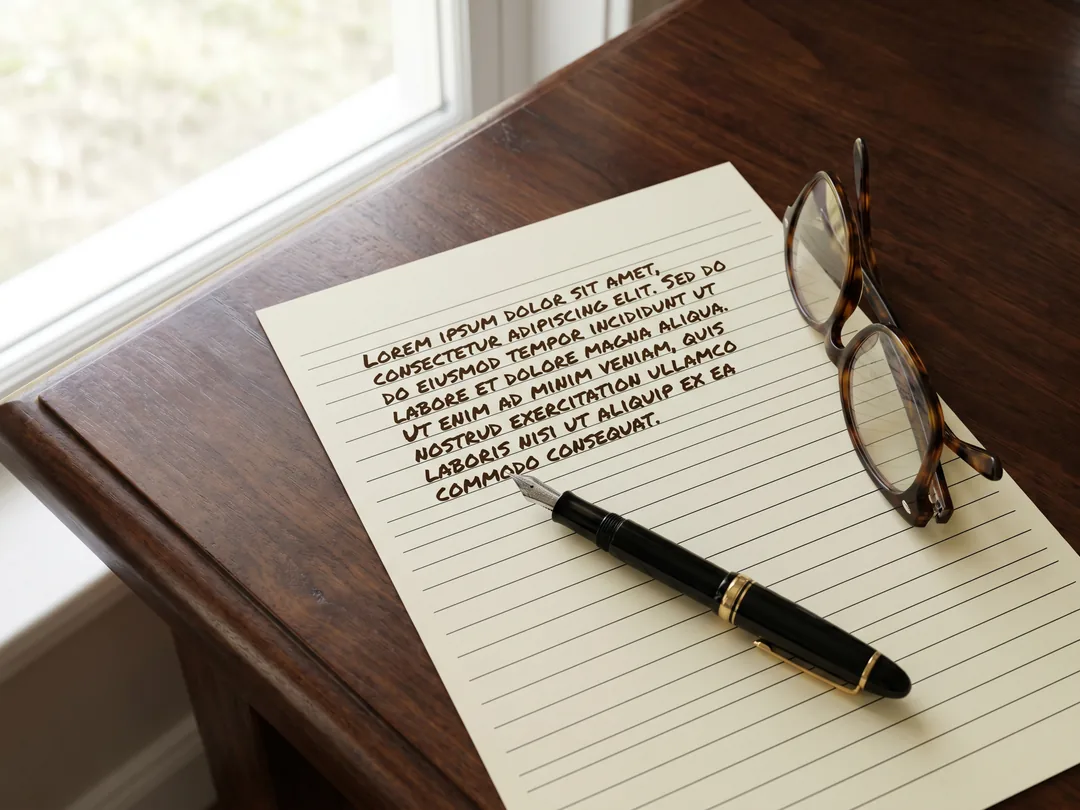 LOREM IPSUM DOLOR SIT AMET,
CONSECTETUR ADIPISCING ELIT. SED DO
DO EIUSMOD TEMPOR INCIDIDUNT UT
LABORE ET DOLORE MAGNA ALIQUA.
UT ENIM AD MINIM VENIAM, QUIS
NOSTRUD EXERCITATION ULLAMCO
LABORIS NISI UT ALIQUIP EX EA
COMMODO CONSEQUAT.